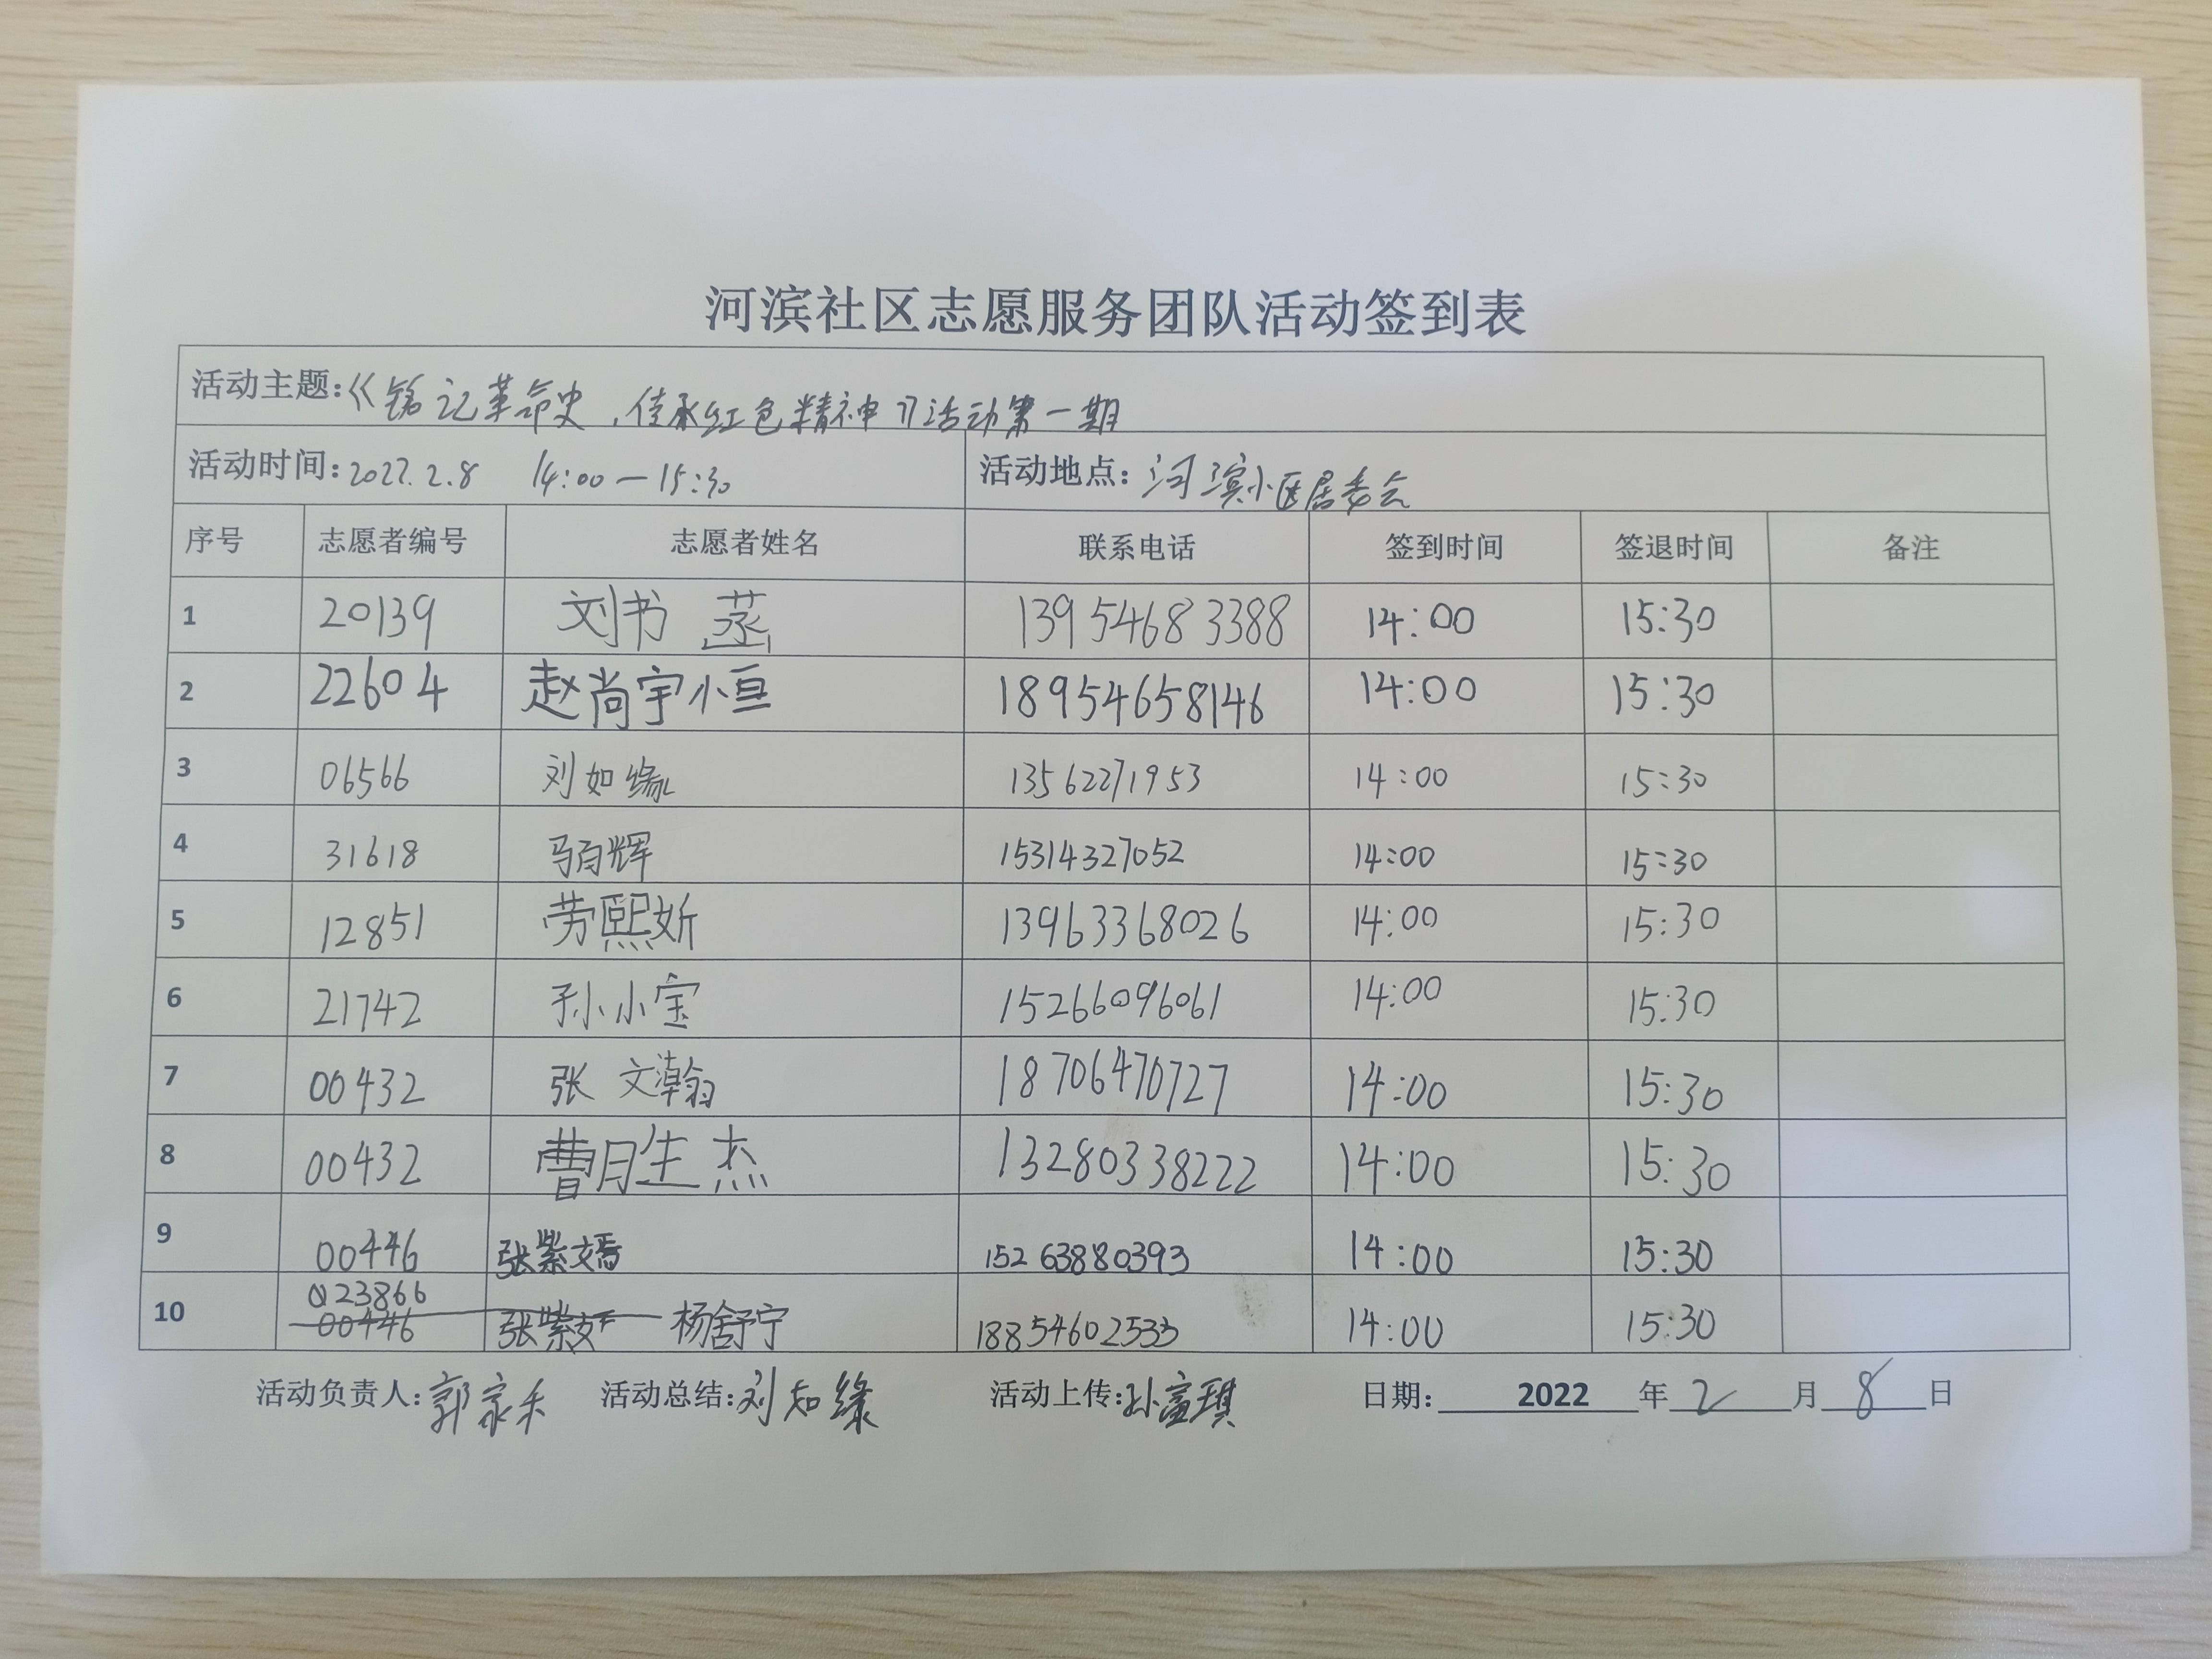 河滨社区志愿服务团队活动签到表
活动主题:《铭记革命史，传承红色精神》活动第一期
活动时间:2022.2.8 14:00—15:30 活动地点:河滨小区居委会
序号 志愿者编号 志愿者姓名 联系电话 签到时间 签退时间 备注
1 20139 刘书 13954683388 14:00 15:30
2 22604 赵尚宇恒 18954658146 14:00 15:30
3 06566 刘如缘 13562271953 14:00 15:30
4 31618 15314327052 14:00 15:30
5 12851 劳熙妡 13963368026 14:00 15:30
6 21742 孙小宝 15266096061 14:00 15:30
7 00432 张文瀚 18706470727 14:00 15:30
8 00432 曹胜杰 13280338222 14:00 15:30
9 00446 张紫嫣 15263880393 14:00 15:30
023866
10 00446 张紫 杨舒宁 18854602533 14:00 15:30
活动负责人:郭家禾 活动总结:刘如缘 活动上传:孙富琪 日期: 2022 年 2 月 8 日